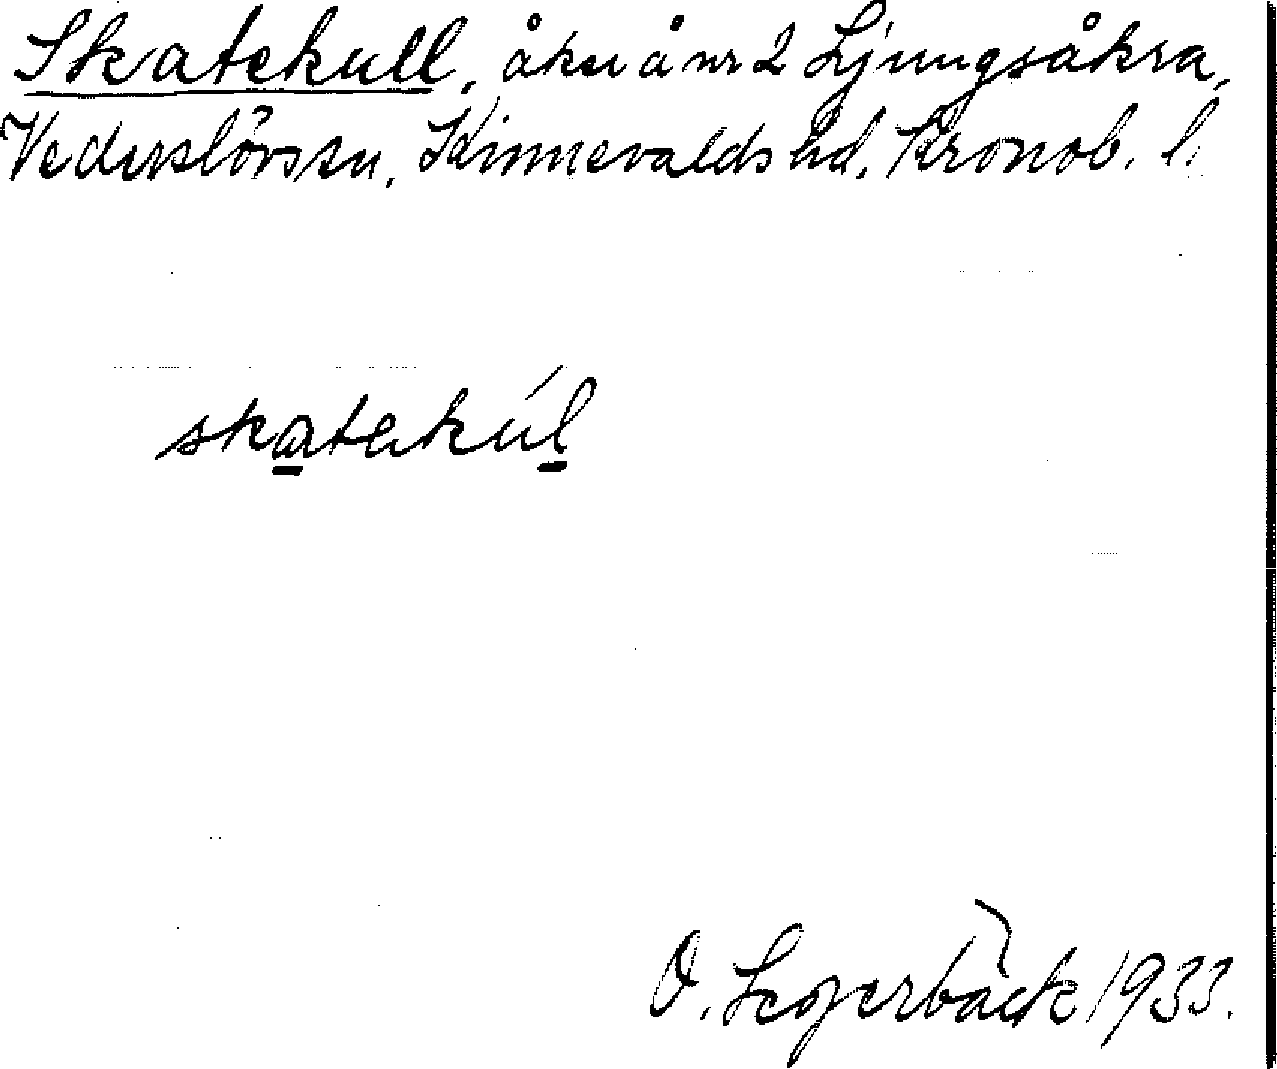 Skatekull, åker å nr 2 Ljungsåkra,
Vederslövs sn, Kinnevalds hd, Kronob. l.
skatekúl
O. Segerbäck 1933.